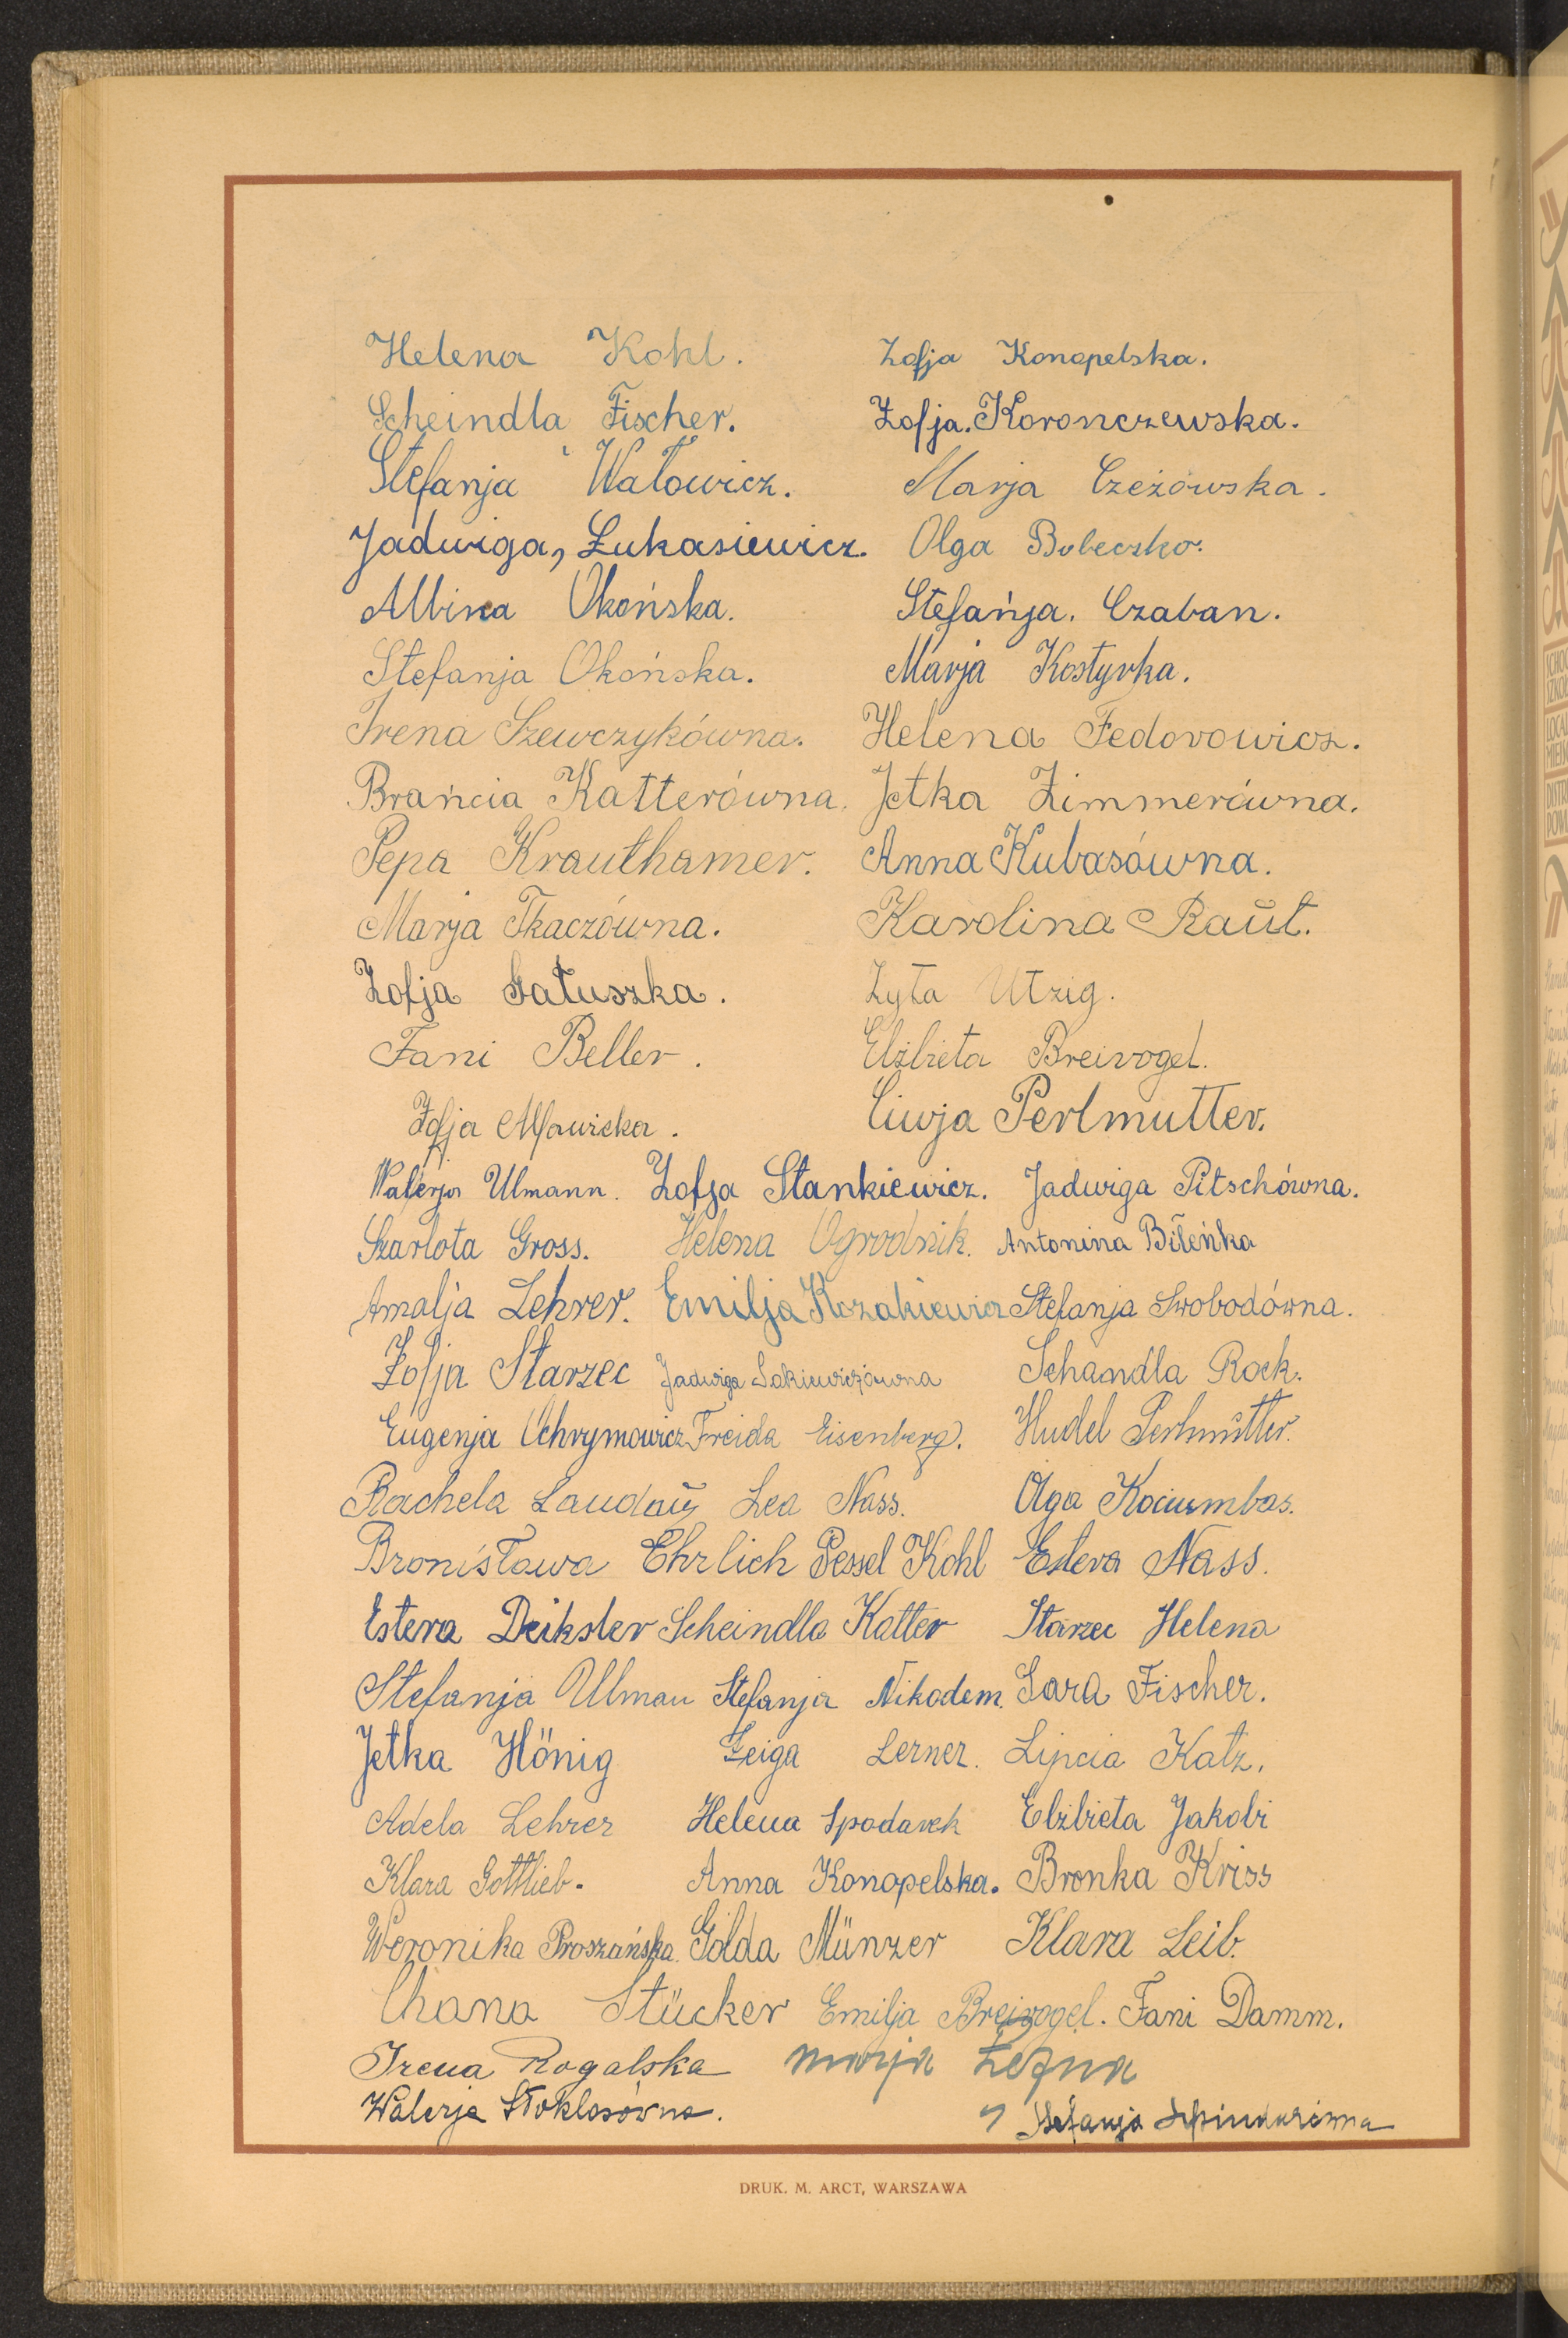 Helena Kohl. Zofja Konopelska.
Scheindla Fischer. Zofja. Koronczewska.
Stefanja Wałowicz. Marja Czeżowska.
Jadwiga, Łukasiewicz. Olga Bobeczko.
Albina Okońska. Stefańja. Czaban.
Stefanja Okońska. Marja Kostyrka.
Irena Szewczykówna. Helena Fedorowicz.
Brańcia Katterówna. Jetka Zimmerówna.
Pepa Krauthamer. Anna Kubasówna.
Marja Tkaczówna. Karolina Raŭt.
Zofja Gałuszka. Zyta Utzig.
Fani Beller. Elżbieta Breivogel.
Zofja Ciwja Perlmutter.
Walerja Ulmann. Zofja Stankiewicz. Jadwiga Pitschówna.
Szarlota Gross. Helena Ogrodnik. Antonina Bileńka
Amalja Lehrer. Emilja Kozakiewicz Stefanja Swobodówna.
Zofja Starzec Jadwiga Sakiewiczówna Schandla Rock.
Eugenja Ochrymowicz Freida Eisenberg. Hudel Perlmŭtter.
Rachela Landaŭ Lea Nass. Olga Kociumbas.
Bronisława Ehrlich Pessel Kohl Estera Nass.
Estera Deiksler Scheindla Katter Starzec Helena
Stefanja Ulman Stefanja Nikodem. Sara Fischer.
Jetka Hönig Feiga Lerner. Lipcia Katz.
Adela Lehrer Helena Spodarek Elżbieta Jakobi
Klara Gottlieb. Anna Konopelska. Bronka Kriss
Weronika Proszańska. Golda Münzer Klara Leib.
Chana Stücker Emilja Breivogel. Fani Damm.
Irena Rogalska Marja
Walerja Stoklosówna. Stefanja
DRUK. M. ARCT, WARSZAWA